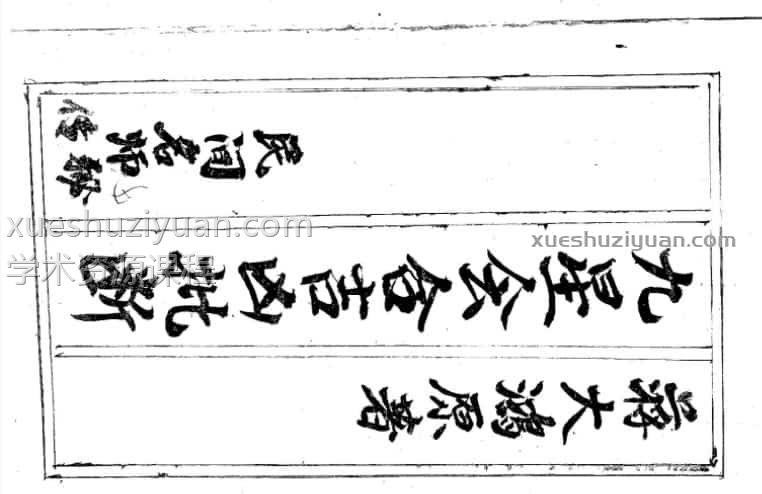 蒋大鸿原著
九星会合吉凶批断
民间名师秘传
xueshuziyuan.com
学术资源课程
xueshuziyuan.com